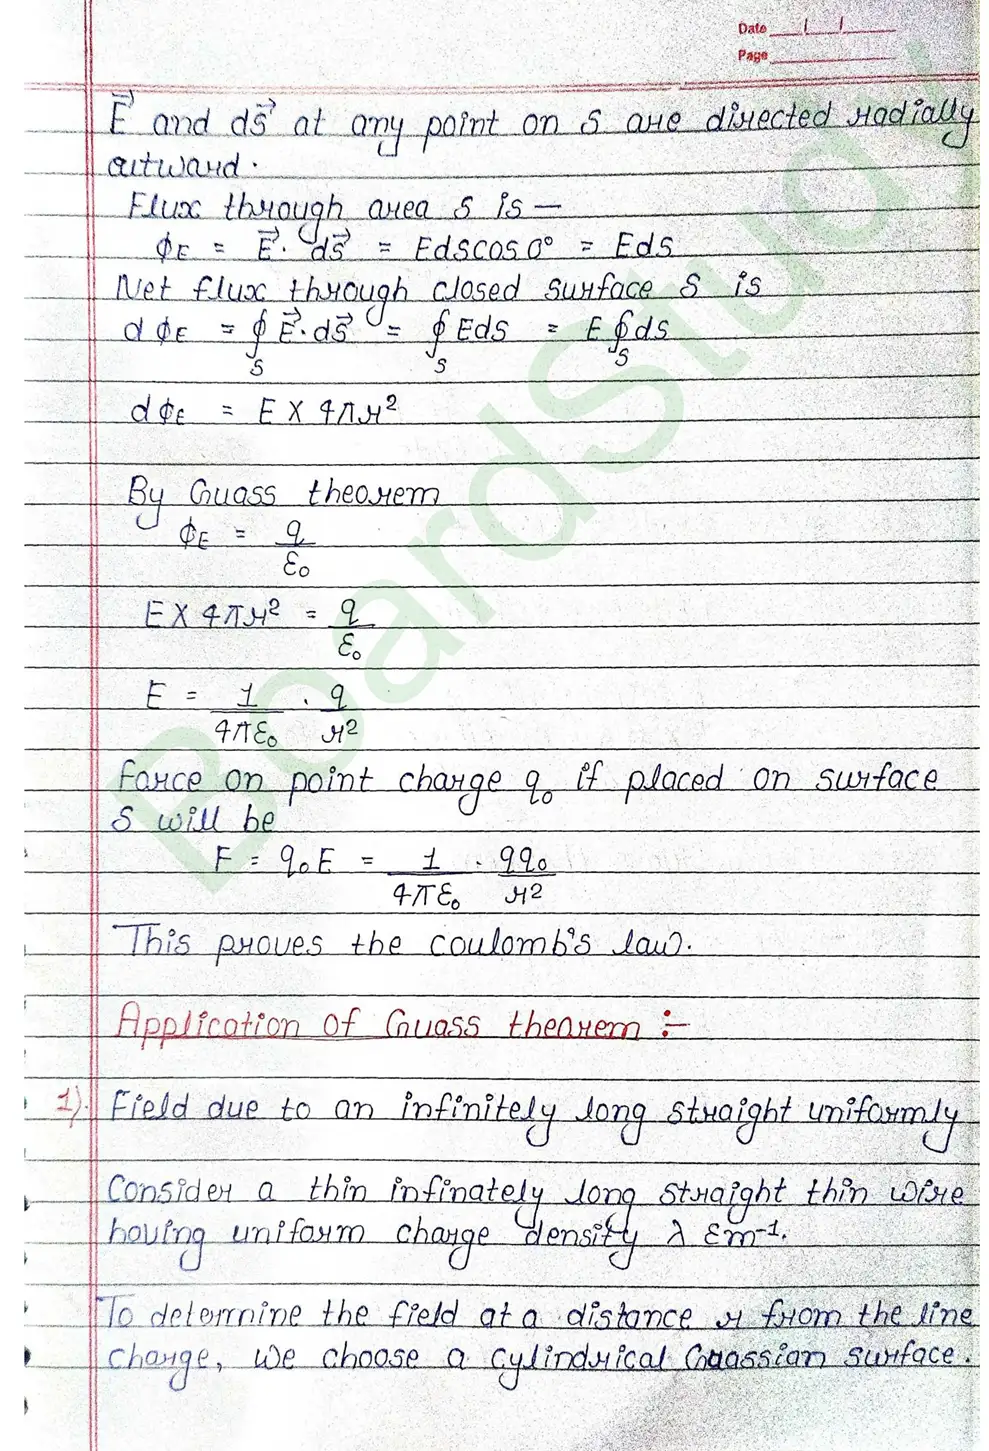 Date ___/___/___
Page
E⃗ and ds⃗ at any point on S are directed radially
outward.
Flux through area S is —
ϕE = E⃗ · ds⃗ = Edscos0° = Eds
Net flux through closed surface S is
dϕE = ∮S E⃗·ds⃗ = ∮S Eds = E∮S ds
dϕE = E X 4πr²
By Guass theorem
ϕE = q/ε₀
E X 4πr² = q/ε₀
E = 1/4πε₀ · q/r²
Force on point charge q₀ if placed on surface
S will be
F = q₀E = 1/4πε₀ · qq₀/r²
This proves the coulomb's law.
Application of Guass theorem :-
1). Field due to an infinitely long straight uniformly
Consider a thin infinately long straight thin wire
having uniform charge density λ εm⁻¹.
To determine the field at a distance r from the line
charge, we choose a cylindrical Gaussian surface.
BoardStudy